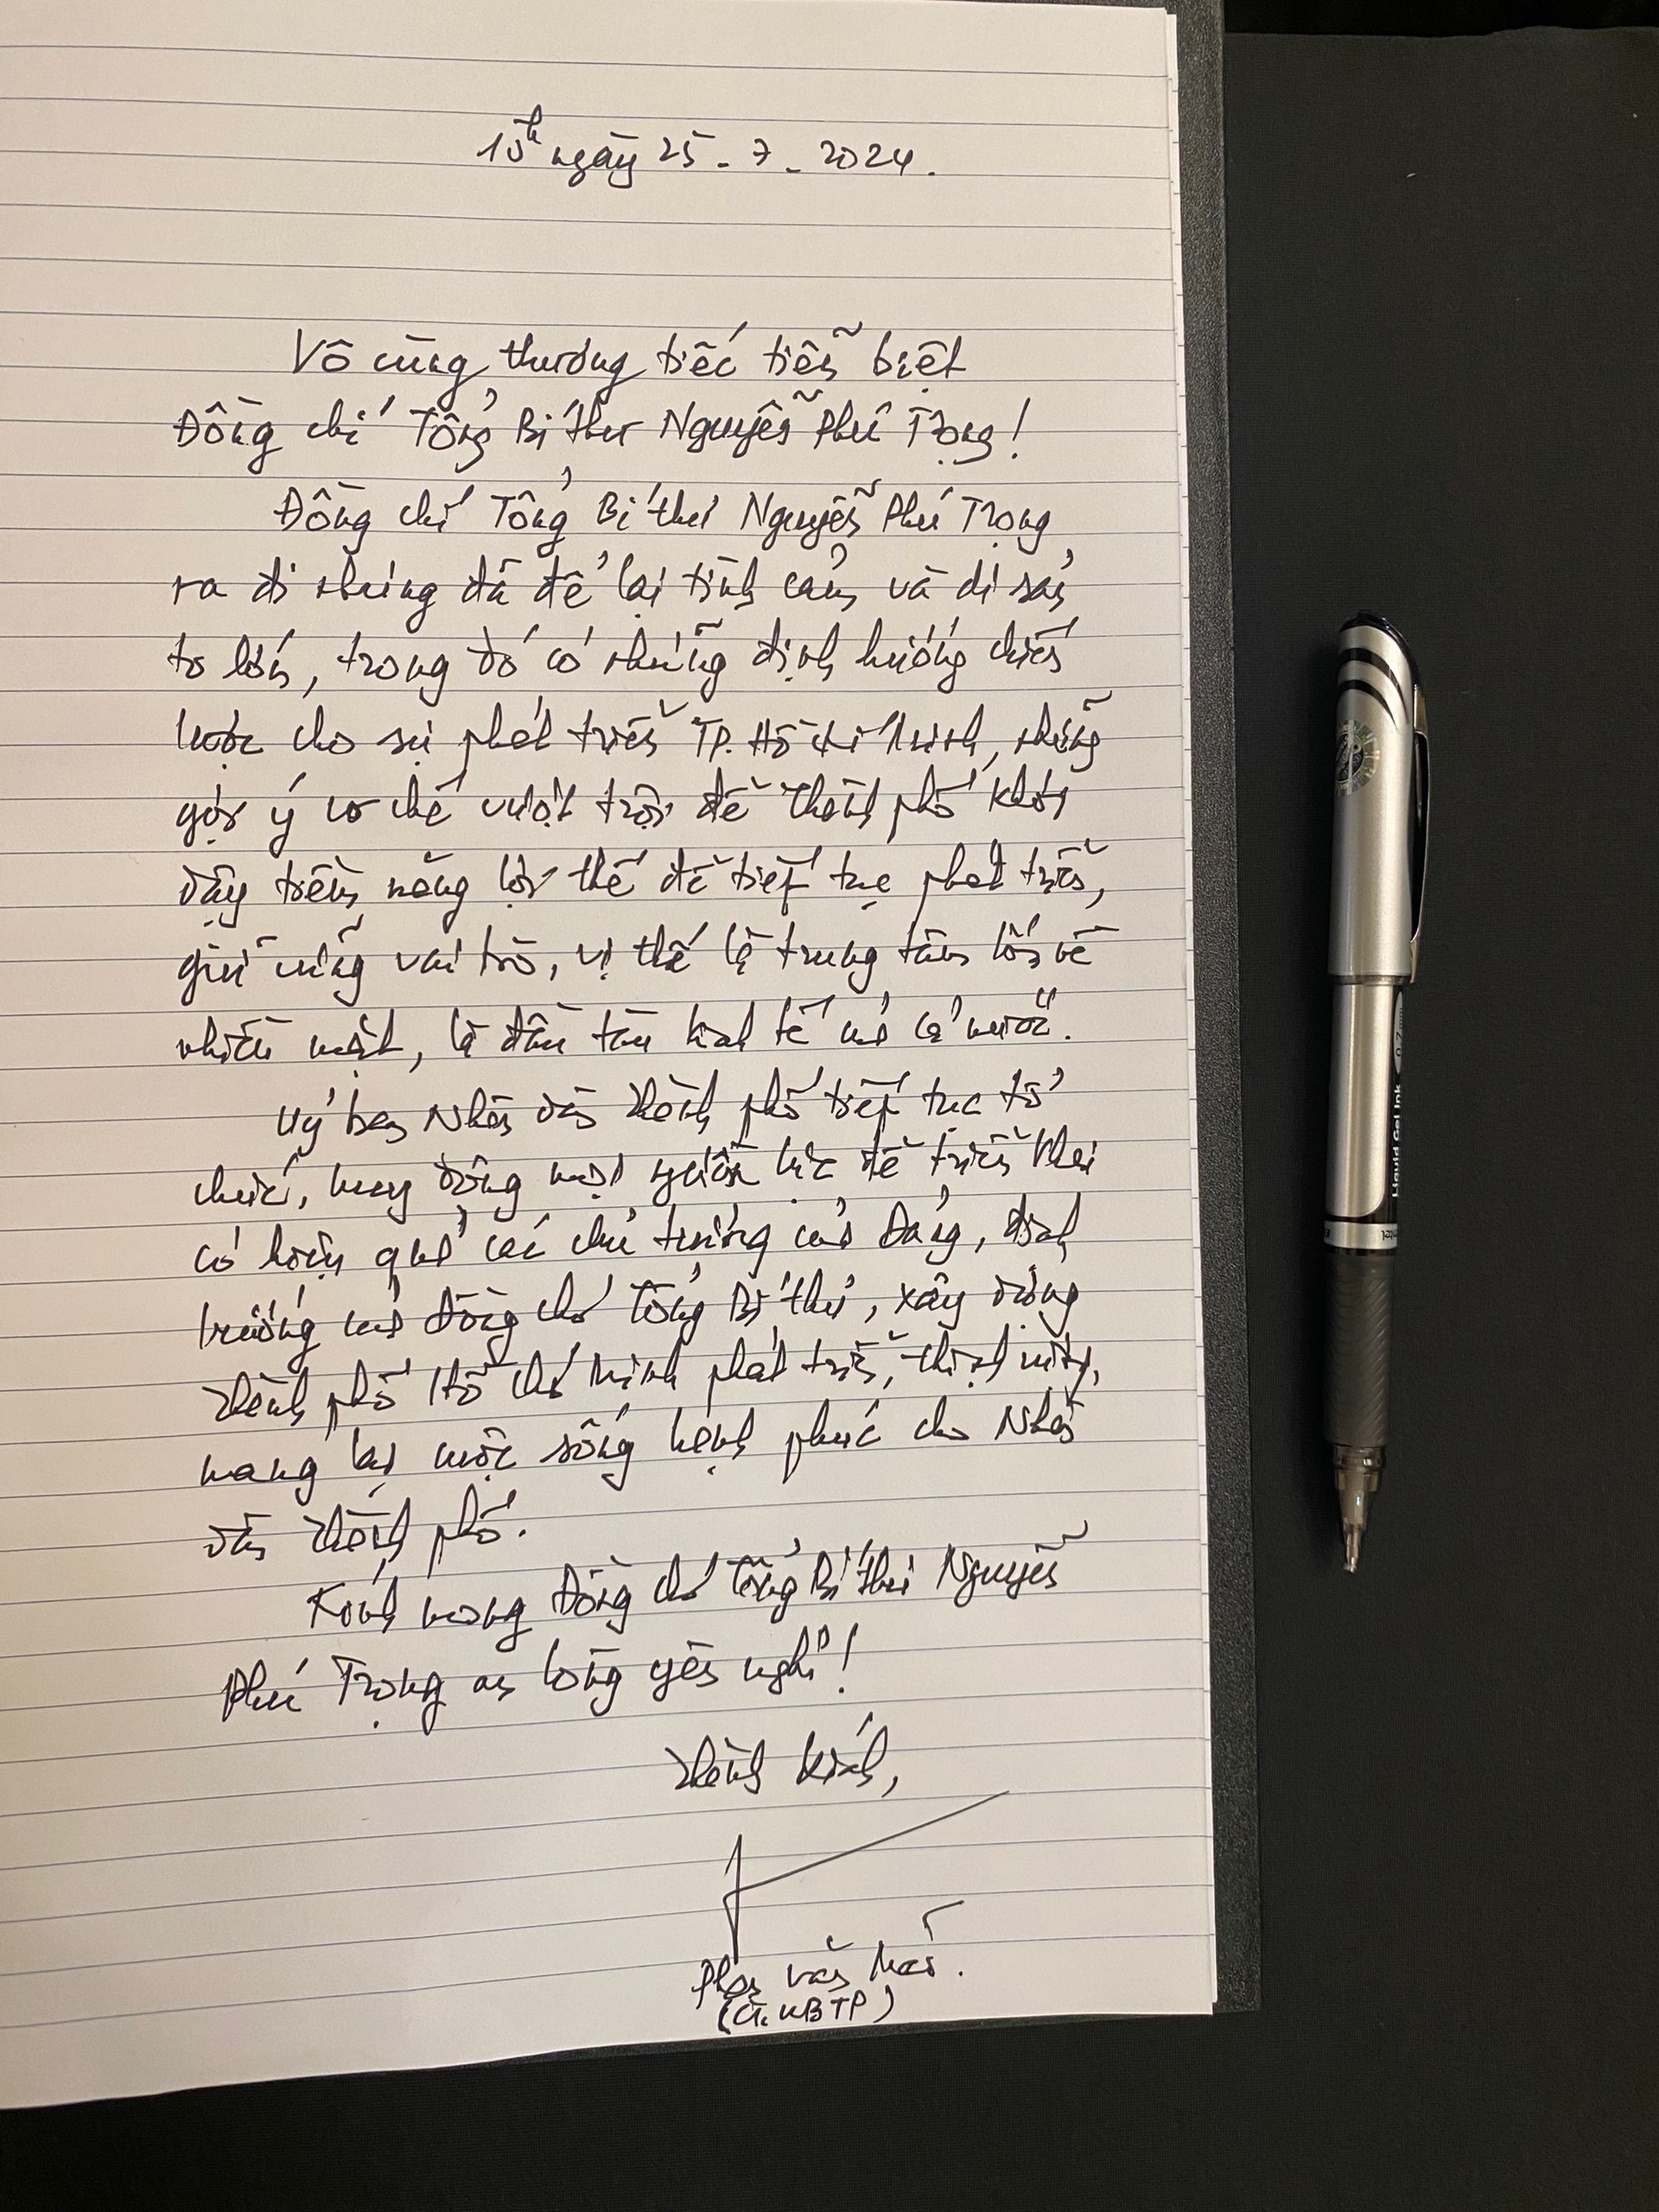 15h ngày 25-7-2024.
Vô cùng thương tiếc tiễn biệt
Đồng chí Tổng Bí thư Nguyễn Phú Trọng!
Đồng chí Tổng Bí thư Nguyễn Phú Trọng
ra đi nhưng đã để lại tình cảm và di sản
to lớn, trong đó có những định hướng chiến
lược cho sự phát triển TP. Hồ Chí Minh, những
gợi ý cơ chế vượt trội để Thành phố khơi
dậy tiềm năng lợi thế để tiếp tục phát triển,
giữ vững vai trò, vị thế là trung tâm lớn về
nhiều mặt, là đầu tàu kinh tế của cả nước.
Uỷ ban Nhân dân Thành phố tiếp tục tổ
chức, huy động mọi nguồn lực để triển khai
có hiệu quả các chủ trương của Đảng, định
hướng của đồng chí Tổng Bí thư, xây dựng
Thành phố Hồ Chí Minh phát triển, thịnh vượng,
mang lại cuộc sống hạnh phúc cho Nhân
dân Thành phố.
Kính mong Đồng chí Tổng Bí thư Nguyễn
Phú Trọng an lòng yên nghỉ!
Thành kính,
Phan Văn Mãi.
(CT. UBTP)
Liquid Gel Ink 0.7